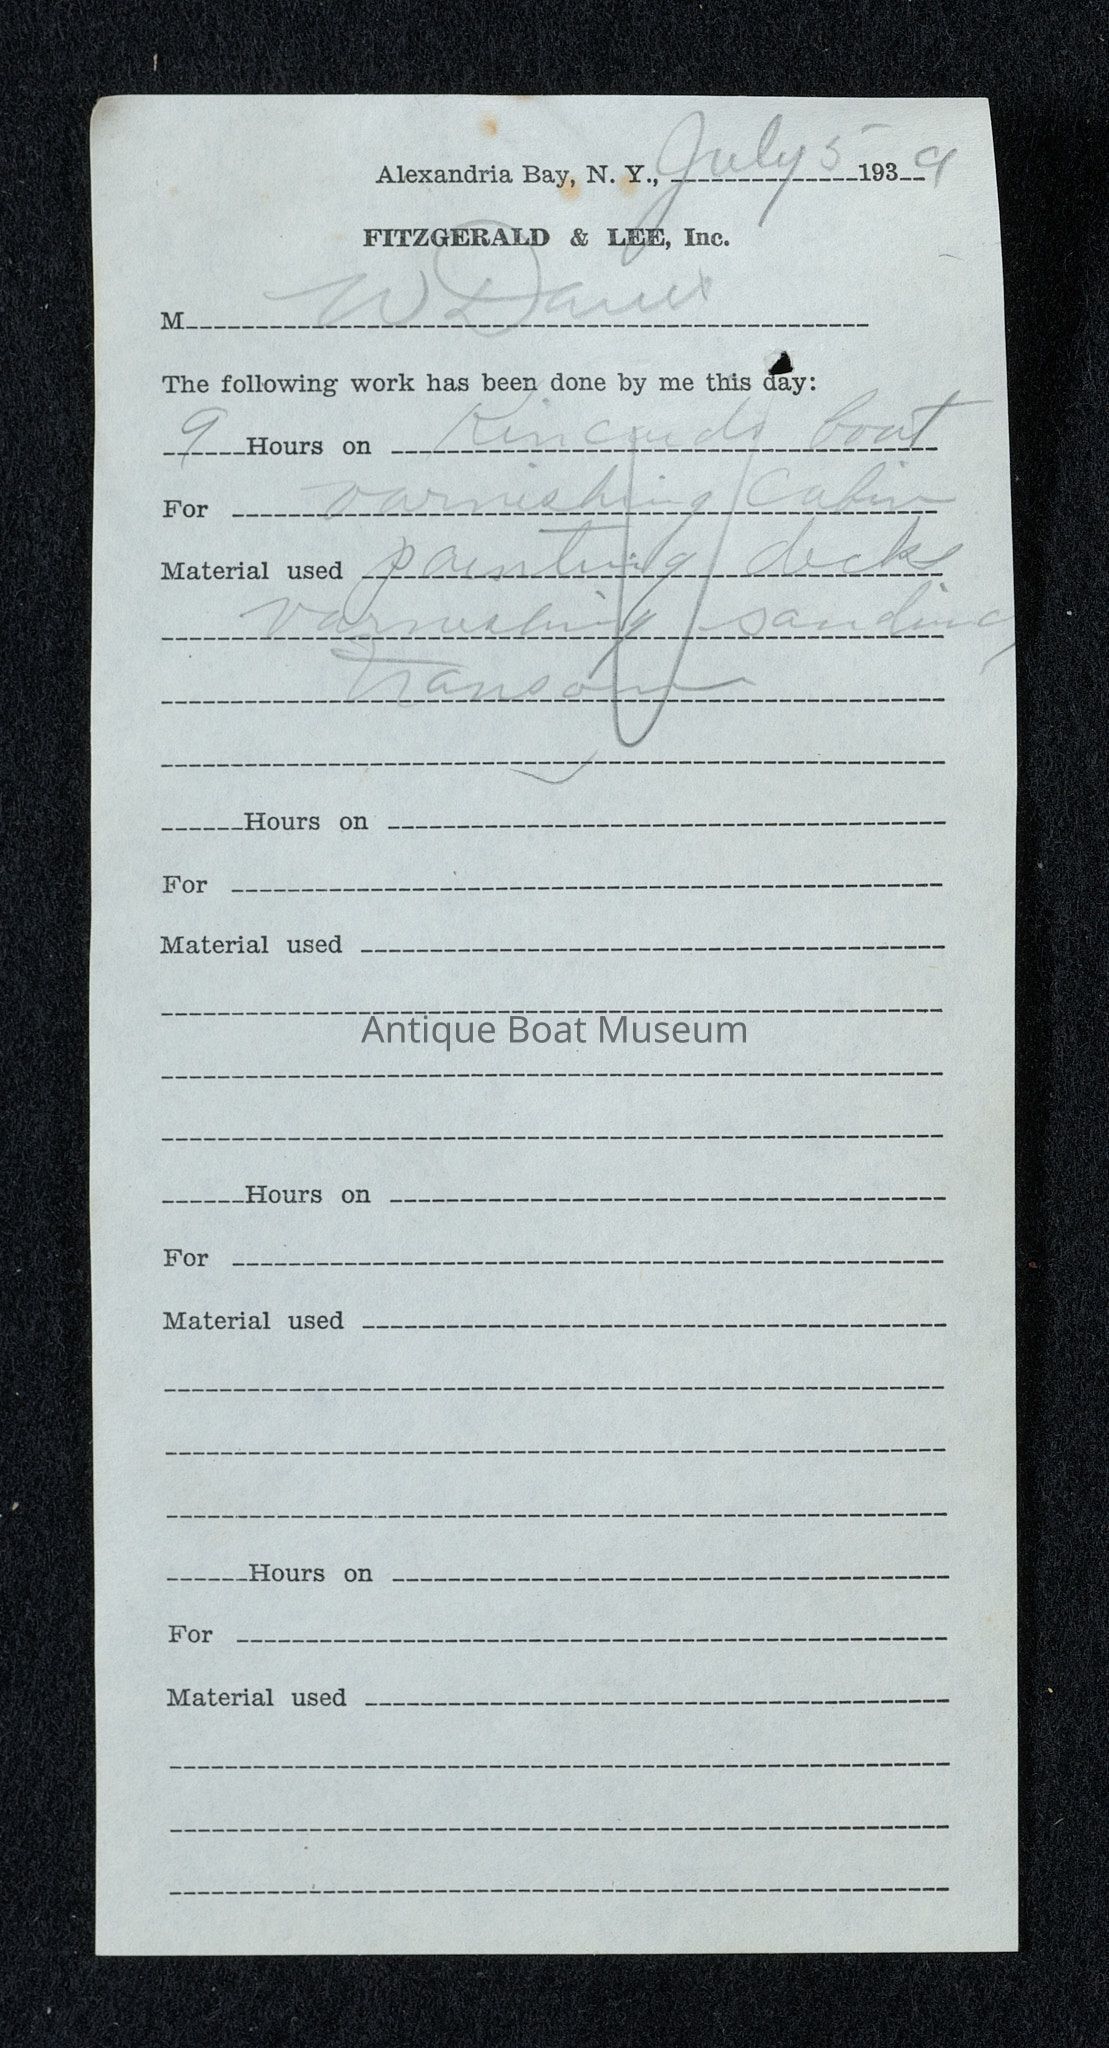 Alexandria Bay, N. Y., July 5 1939
FITZGERALD & LEE, Inc.
M W
The following work has been done by me this day:
9 Hours on boat
For varnishing Cabin
Material used painting decks
varnishing sanding
transom
Hours on
For
Material used
Antique Boat Museum
Hours on
For
Material used
Hours on
For
Material used